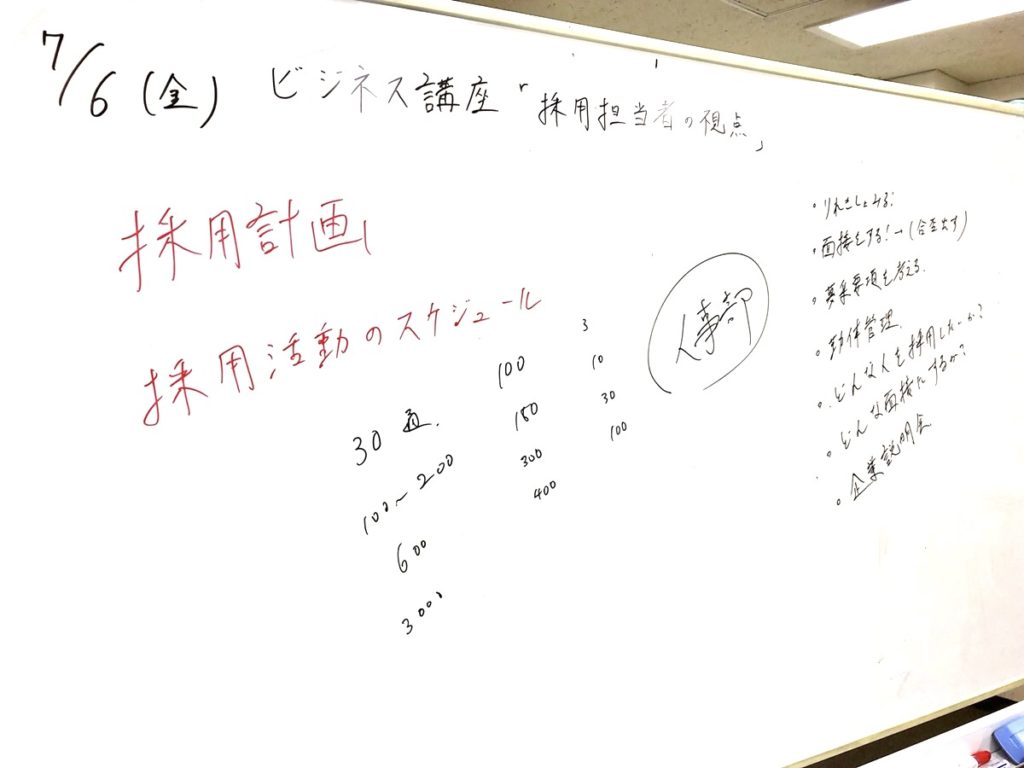 7/6(金) ビジネス講座「採用担当者の視点」
採用計画
採用活動のスケジュール
30 通.
100~200
600
3000
100
150
300
400
3
10
30
100
人事部
・りれきしょみる!
・面接をする!→(合否出す)
・募集要項を考える.
・勤怠管理.
・どんな人を採用したいか?
・どんな面接にするか?
・企業説明会